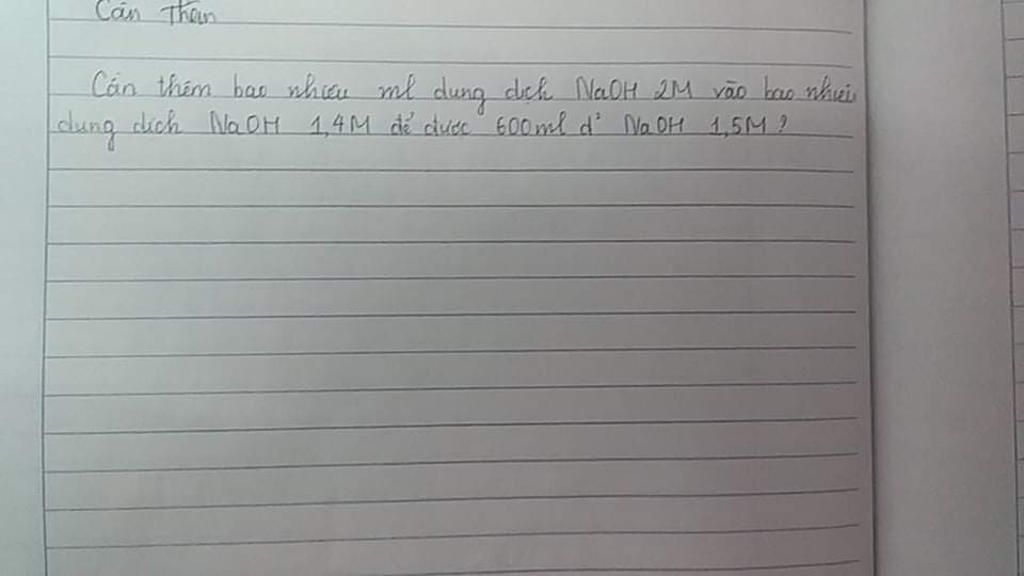 Cần Thêm
Cần thêm bao nhiêu ml dung dịch NaOH 2M vào bao nhiêu
dung dịch NaOH 1,4M để được 600ml d² NaOH 1,5M?